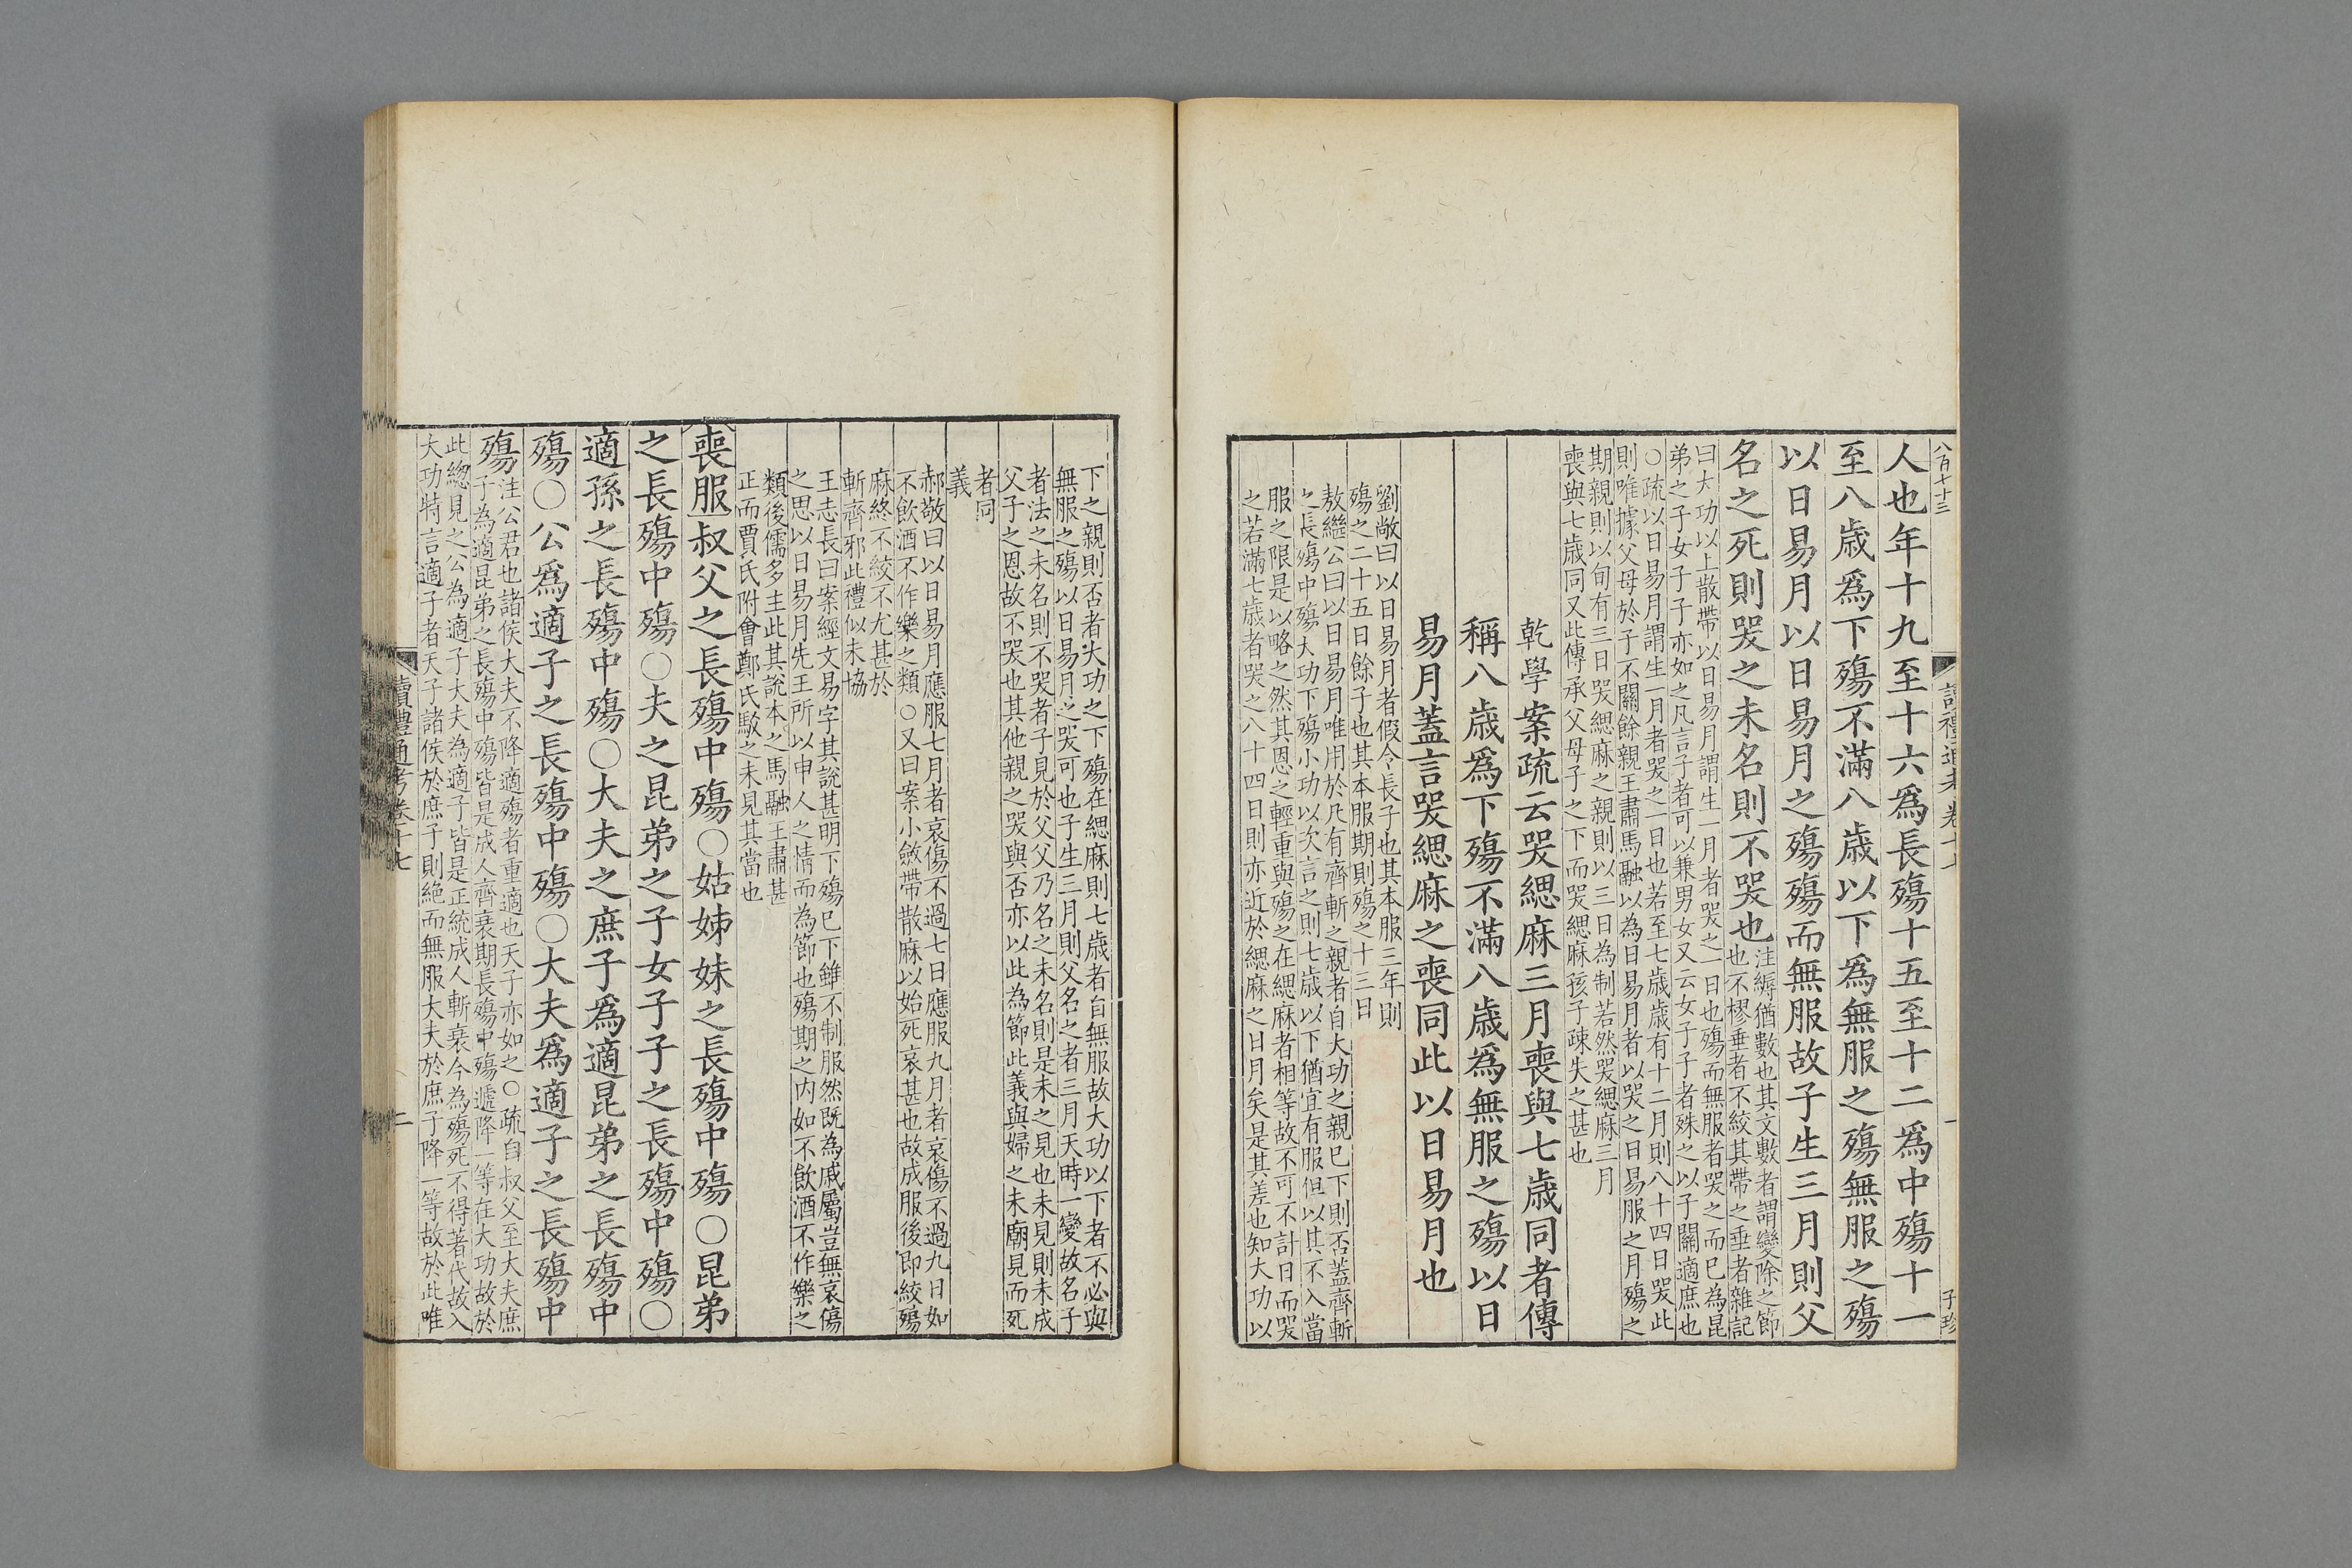 八百七十三
讀禮通考卷十七
一
子珍
人也年十九至十六爲長殤十五至十二爲中殤十一
至八歲爲下殤不滿八歲以下爲無服之殤無服之殤
以日易月以日易月之殤殤而無服故子生三月則父
名之死則哭之未名則不哭也
注縟猶數也其文數者謂變除之節
也不樛垂者不絞其帶之垂者雜記
曰大功以上散帶以日易月謂生一月者哭之一日也殤而無服者哭之而已為昆
弟之子女子子亦如之凡言子者可以兼男女又云女子子者殊之以子關適庶也
○疏以日易月謂生一月者哭之一日也若至七歲歲有十二月則八十四日哭此
則唯據父母於子不關餘親王肅馬融以為日易月者以哭之日易服之月殤之
期親則以旬有三日哭緦麻之親則以三日為制若然哭緦麻三月
喪與七歲同又此傳承父母子之下而哭緦麻孩子疎失之甚也
乾學案疏云哭緦麻三月喪與七歲同者傳
稱八歲爲下殤不滿八歲爲無服之殤以日
易月蓋言哭緦麻之喪同此以日易月也
劉敞曰以日易月者假令長子也其本服三年則
殤之二十五日餘子也其本服期則殤之十三日
敖繼公曰以日易月唯用於凡有齊斬之親者自大功之親巳下則否蓋齊斬
之長殤中殤大功下殤小功以次言之則七歲以下猶宜有服但以其不入當
服之限是以略之然其恩之輕重與殤之在緦麻者相等故不可不計日而哭
之若滿七歲者哭之八十四日則亦近於緦麻之日月矣是其差也知大功以
下之親則否者大功之下殤在緦麻則七歲者自無服故大功以下者不必與
無服之殤以日易月之哭可也子生三月則父名之者三月天時一變故名子
者法之未名則不哭者子見於父父乃名之未名則是未之見也未見則未成
父子之恩故不哭也其他親之哭與否亦以此為節此義與婦之未廟見而死
者同
義
郝敬曰以日易月應服七月者哀傷不過七日應服九月者哀傷不過九日如
不飲酒不作樂之類○又曰案小斂帶散麻以始死哀甚也故成服後即絞殤
麻終不絞不尤甚於
斬齊邪此禮似未協
王志長曰案經文易字其說甚明下殤已下雖不制服然既為戚屬豈無哀傷
之思以日易月先王所以申人之情而為節也殤期之内如不飲酒不作樂之
類後儒多主此其說本之馬融王肅甚
正而賈氏附會鄭氏駮之未見其當也
喪服叔父之長殤中殤○姑姊妹之長殤中殤○昆弟
之長殤中殤○夫之昆弟之子女子子之長殤中殤○
適孫之長殤中殤○大夫之庶子爲適昆弟之長殤中
殤○公爲適子之長殤中殤○大夫爲適子之長殤中
殤
注公君也諸侯大夫不降適殤者重適也天子亦如之○疏自叔父至大夫庶
子為適昆弟之長殤中殤皆是成人齊衰期長殤中殤遞降一等在大功故於
此總見之公為適子大夫為適子皆是正統成人斬衰今為殤死不得著代故入
大功特言適子者天子諸侯於庶子則絶而無服大夫於庶子降一等故於此唯
讀禮通考卷十七
二